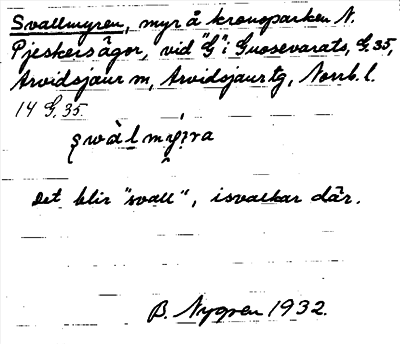 Svallmyren, myr å kronoparken N.
Pjeskersågor, vid "G" i Guosevarats, G. 35,
Arvidsjaur m, Arvidsjaur tg, Norrb. l.
14 G. 35.
Det blir "svall", isvalkar där.
B. Nygren 1932.